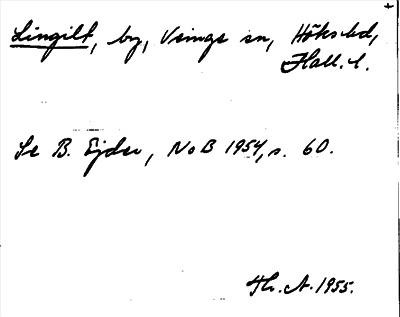 Lingilt, by, Vinge sn, Höks hd,
Hall. l.
Se B. Ejder, NoB 1954, s. 60.
Th. A. 1955.